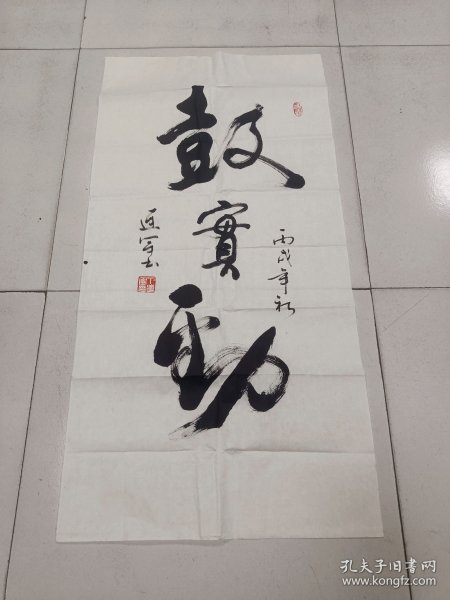 鼓實勁
丙戌年秋
孔夫子旧书网
www.kongfz.com